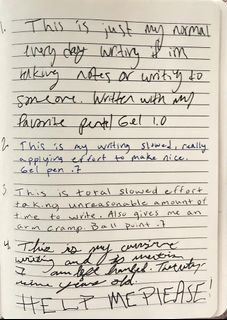 1. This is just my normal
every day writing if im
taking notes or writing to
someone. Written with my
favorite pentel Gel 1.0
2. This is my writing slowed, really
applying effort to make nice.
Gel pen .7
3. This is total slowed effort
taking unreasonable amount of
time to write. Also gives me an
arm cramp. Ball point .7
4. This is my cursive
writing and to mention
I am left handed. Twenty
nine years old.
HELP ME PLEASE!